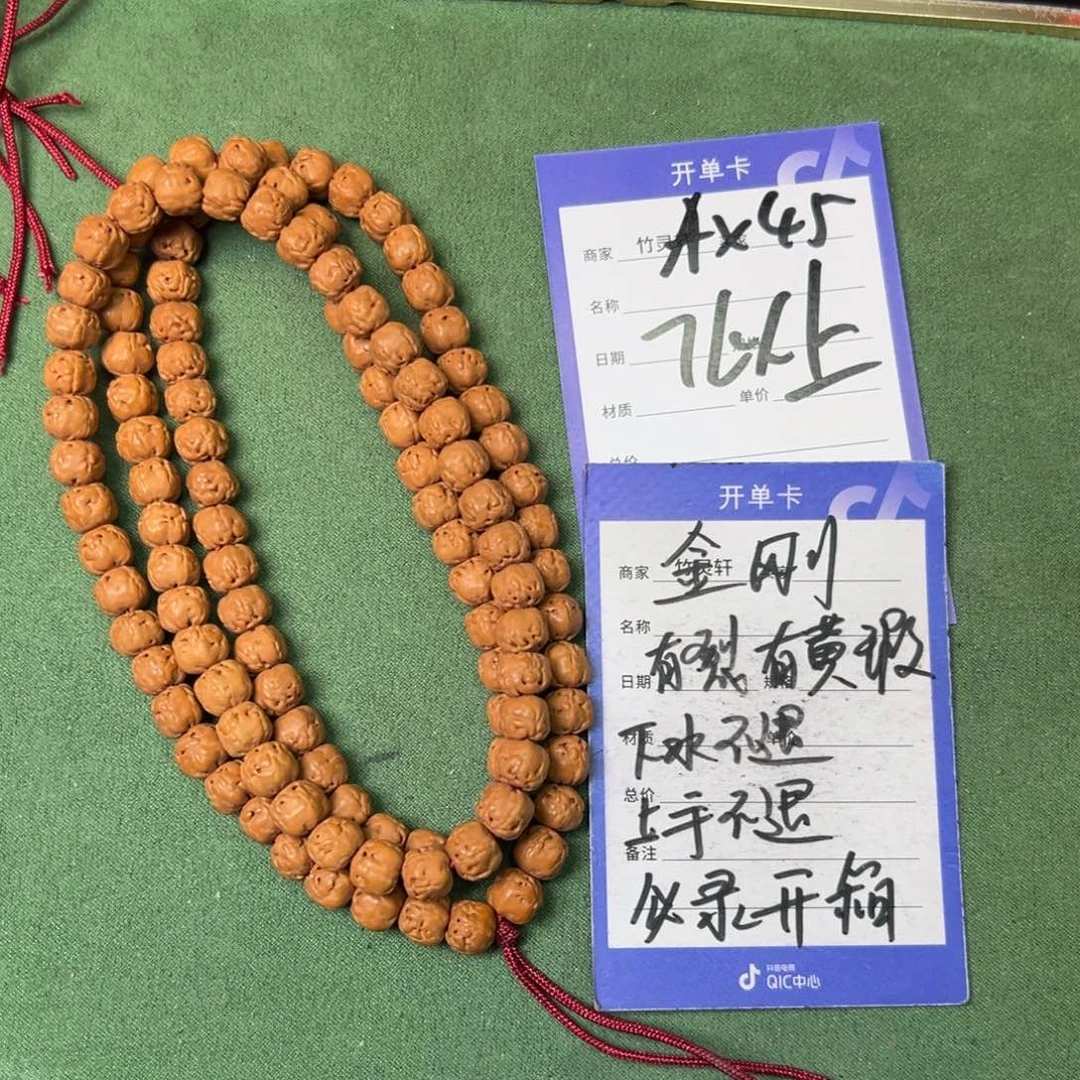 开单卡
A×45
商家 竹灵
名称
日期
单价
材质
开单卡
金刚
商家 竹灵轩
名称
有裂有黄瑕
日期 规格
下水不退
材质 单价
总价
上手不退
备注
必录开箱
抖音电商
QIC中心